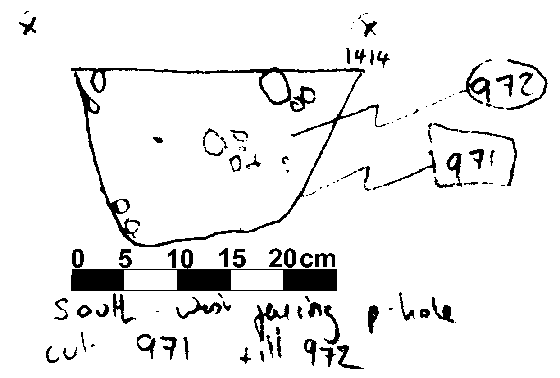 x x
1414
972
971
0 5 10 15 20cm
South - west facing p-hole
cut 971 fill 972